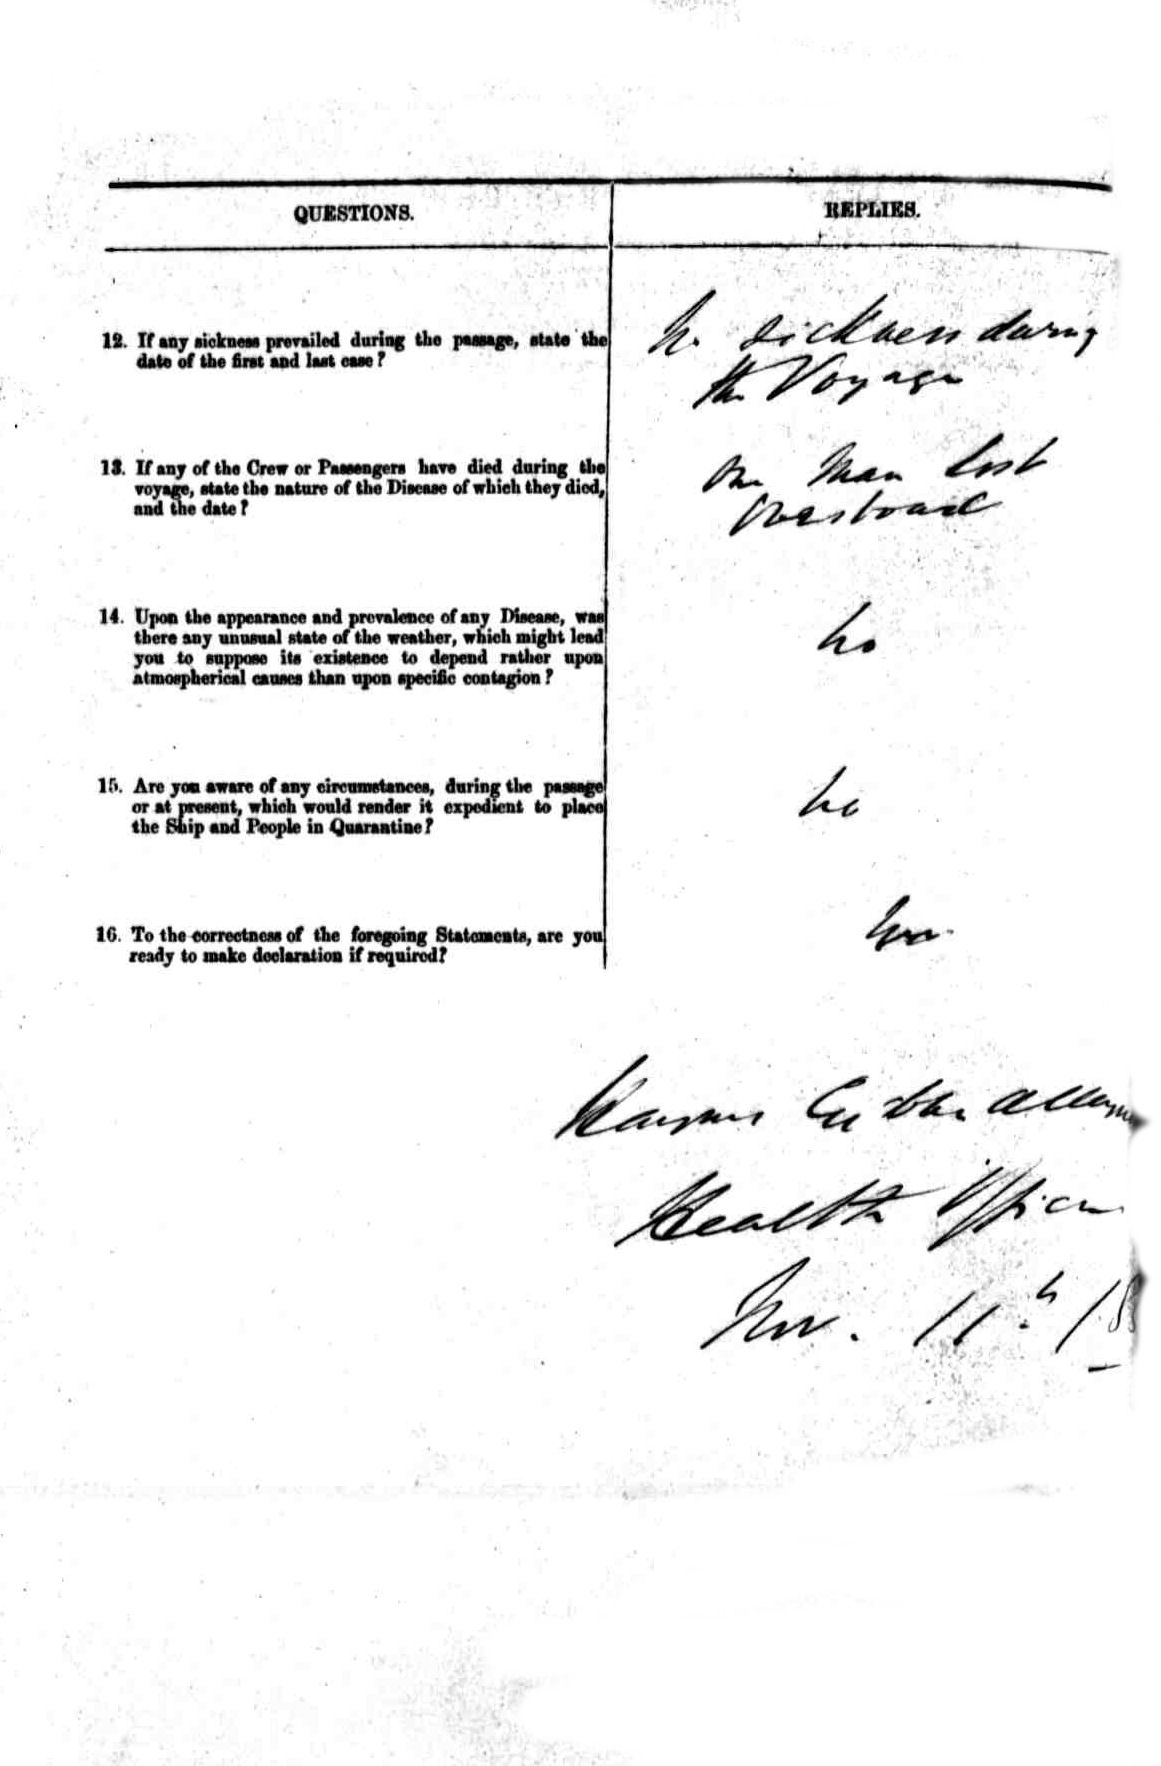 QUESTIONS.
REPLIES.
12. If any sickness prevailed during the passage, state the
date of the first and last case?
No sickness during
the Voyage
13. If any of the Crew or Passengers have died during the
voyage, state the nature of the Disease of which they died,
and the date?
One Man lost
Overboard
14. Upon the appearance and prevalence of any Disease, was
there any unusual state of the weather, which might lead
you to suppose its existence to depend rather upon
atmospherical causes than upon specific contagion?
No
15. Are you aware of any circumstances, during the passage
or at present, which would render it expedient to place
the Ship and People in Quarantine?
No
16. To the correctness of the foregoing Statements, are you
ready to make declaration if required?
Yes
Health Officer
Nov. 11th 18